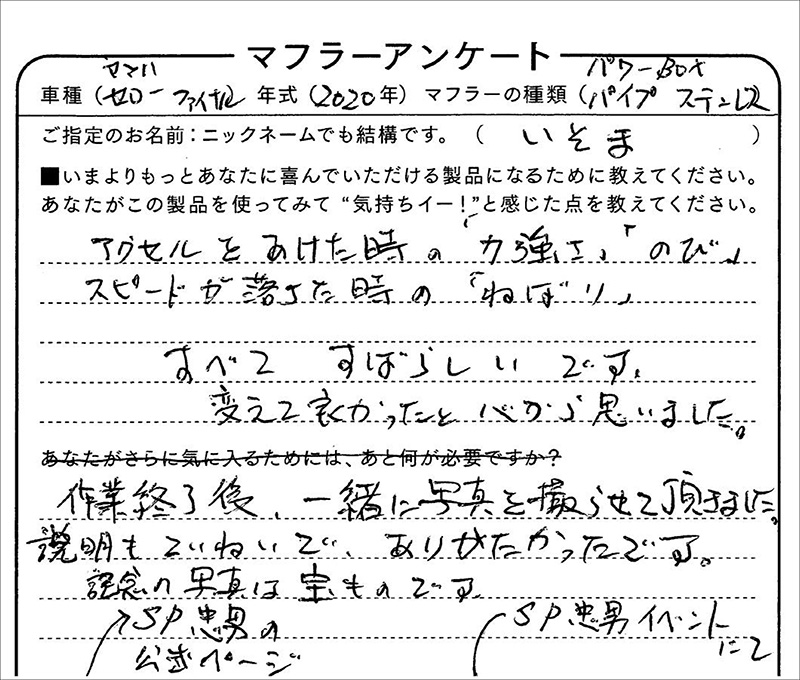 マフラーアンケート
ヤマハ パワーBOX
車種(セローファイナル 年式(2020年) マフラーの種類(パイプ ステンレス
ご指定のお名前:ニックネームでも結構です。( いそま )
■いまよりもっとあなたに喜んでいただける製品になるために教えてください。
あなたがこの製品を使ってみて“気持ちイー!”と感じた点を教えてください。
アクセルをあけた時の「力強さ」「のび」
スピードが落ちた時の「ねばり」
すべて すばらしいです。
変えて良かったと心から思いました。
あなたがさらに気に入るためには、あと何が必要ですか?
作業終了後、一緒に写真を撮らせて頂きました。
説明もていねいで、ありがたかったです。
記念の写真は宝ものです。
SP忠男の SP忠男イベント
公式ページ にて